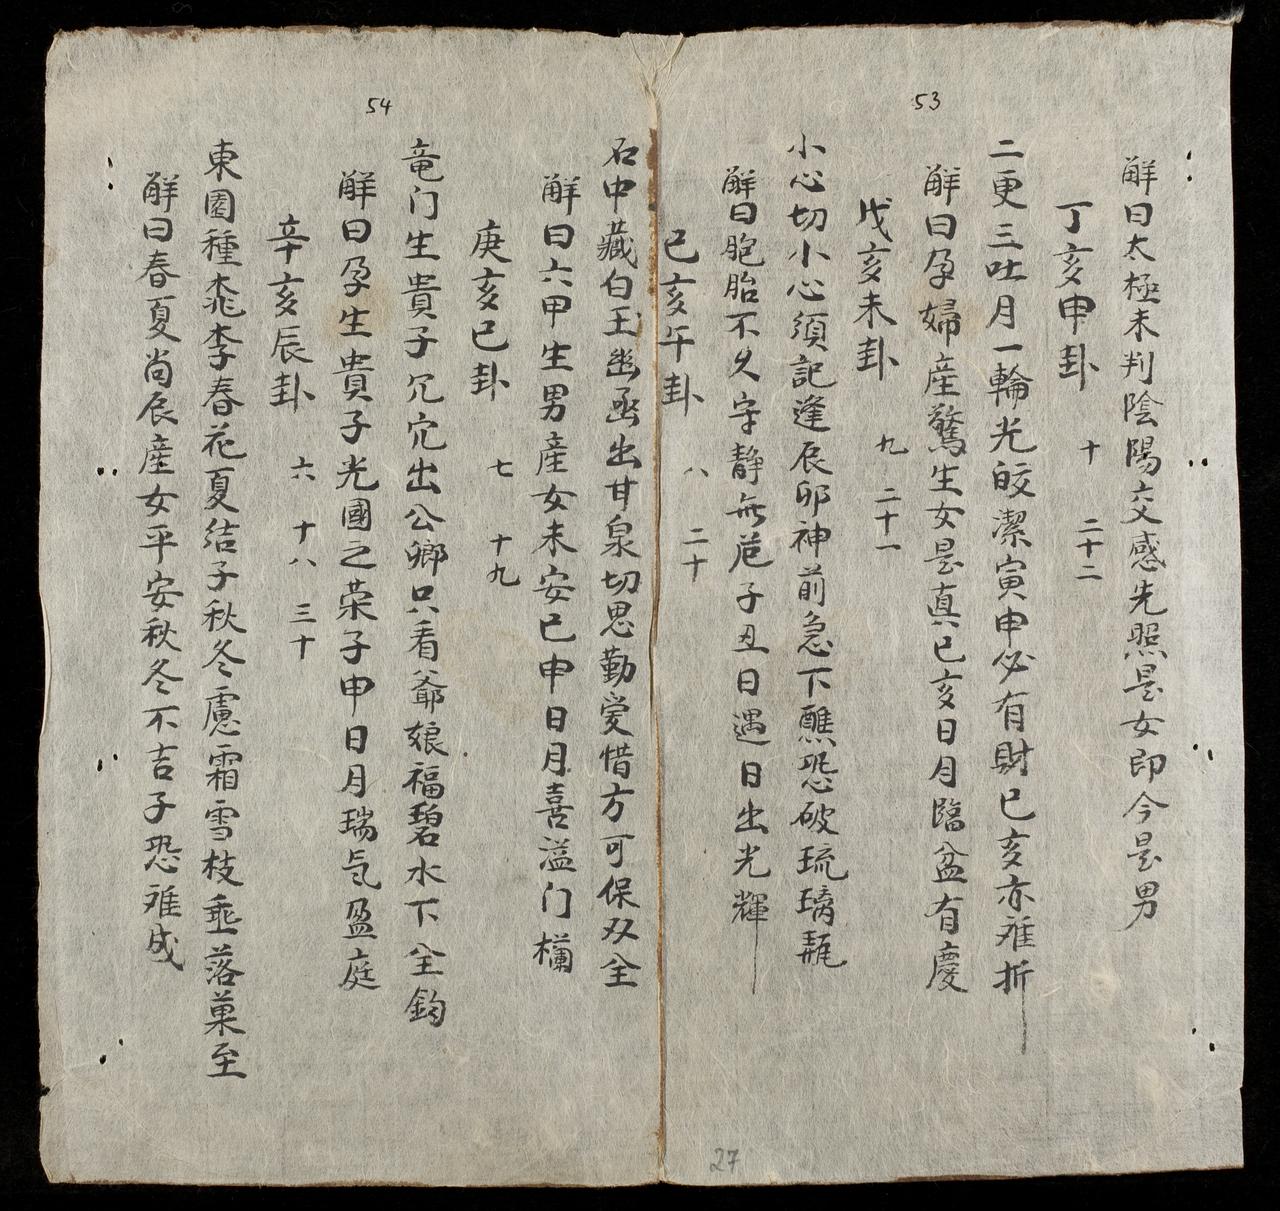 53
解曰太極未判陰陽交感先照是女印今是男
丁亥申卦 十 二十二
二更三吐月一輪光皎潔寅申必有財巳亥亦难折
解曰孕婦産驚生女是真巳亥日月臨盆有慶
戊亥未卦 九 二十一
小心切小心須記逢辰卯神前急下醮恐破琉璃瓶
解曰胞胎不久字静無危子丑日遇日出光輝
己亥午卦 八 二十
54
石中藏白玉幽函出甘泉切思勤爱惜方可保双全
解曰六甲生男産女未安巳申日月喜溢门欄
庚亥巳卦 七 十九
竜门生貴子冗穴出公卿只看爺娘福碧水下全鈎
解曰孕生貴子光國之荣子申日月瑞氕盈庭
辛亥辰卦 六 十八 三十
東園種桃李春花夏结子秋冬慮霜雪枝垂落菓至
解曰春夏尚辰産女平安秋冬不吉子恐难成
27